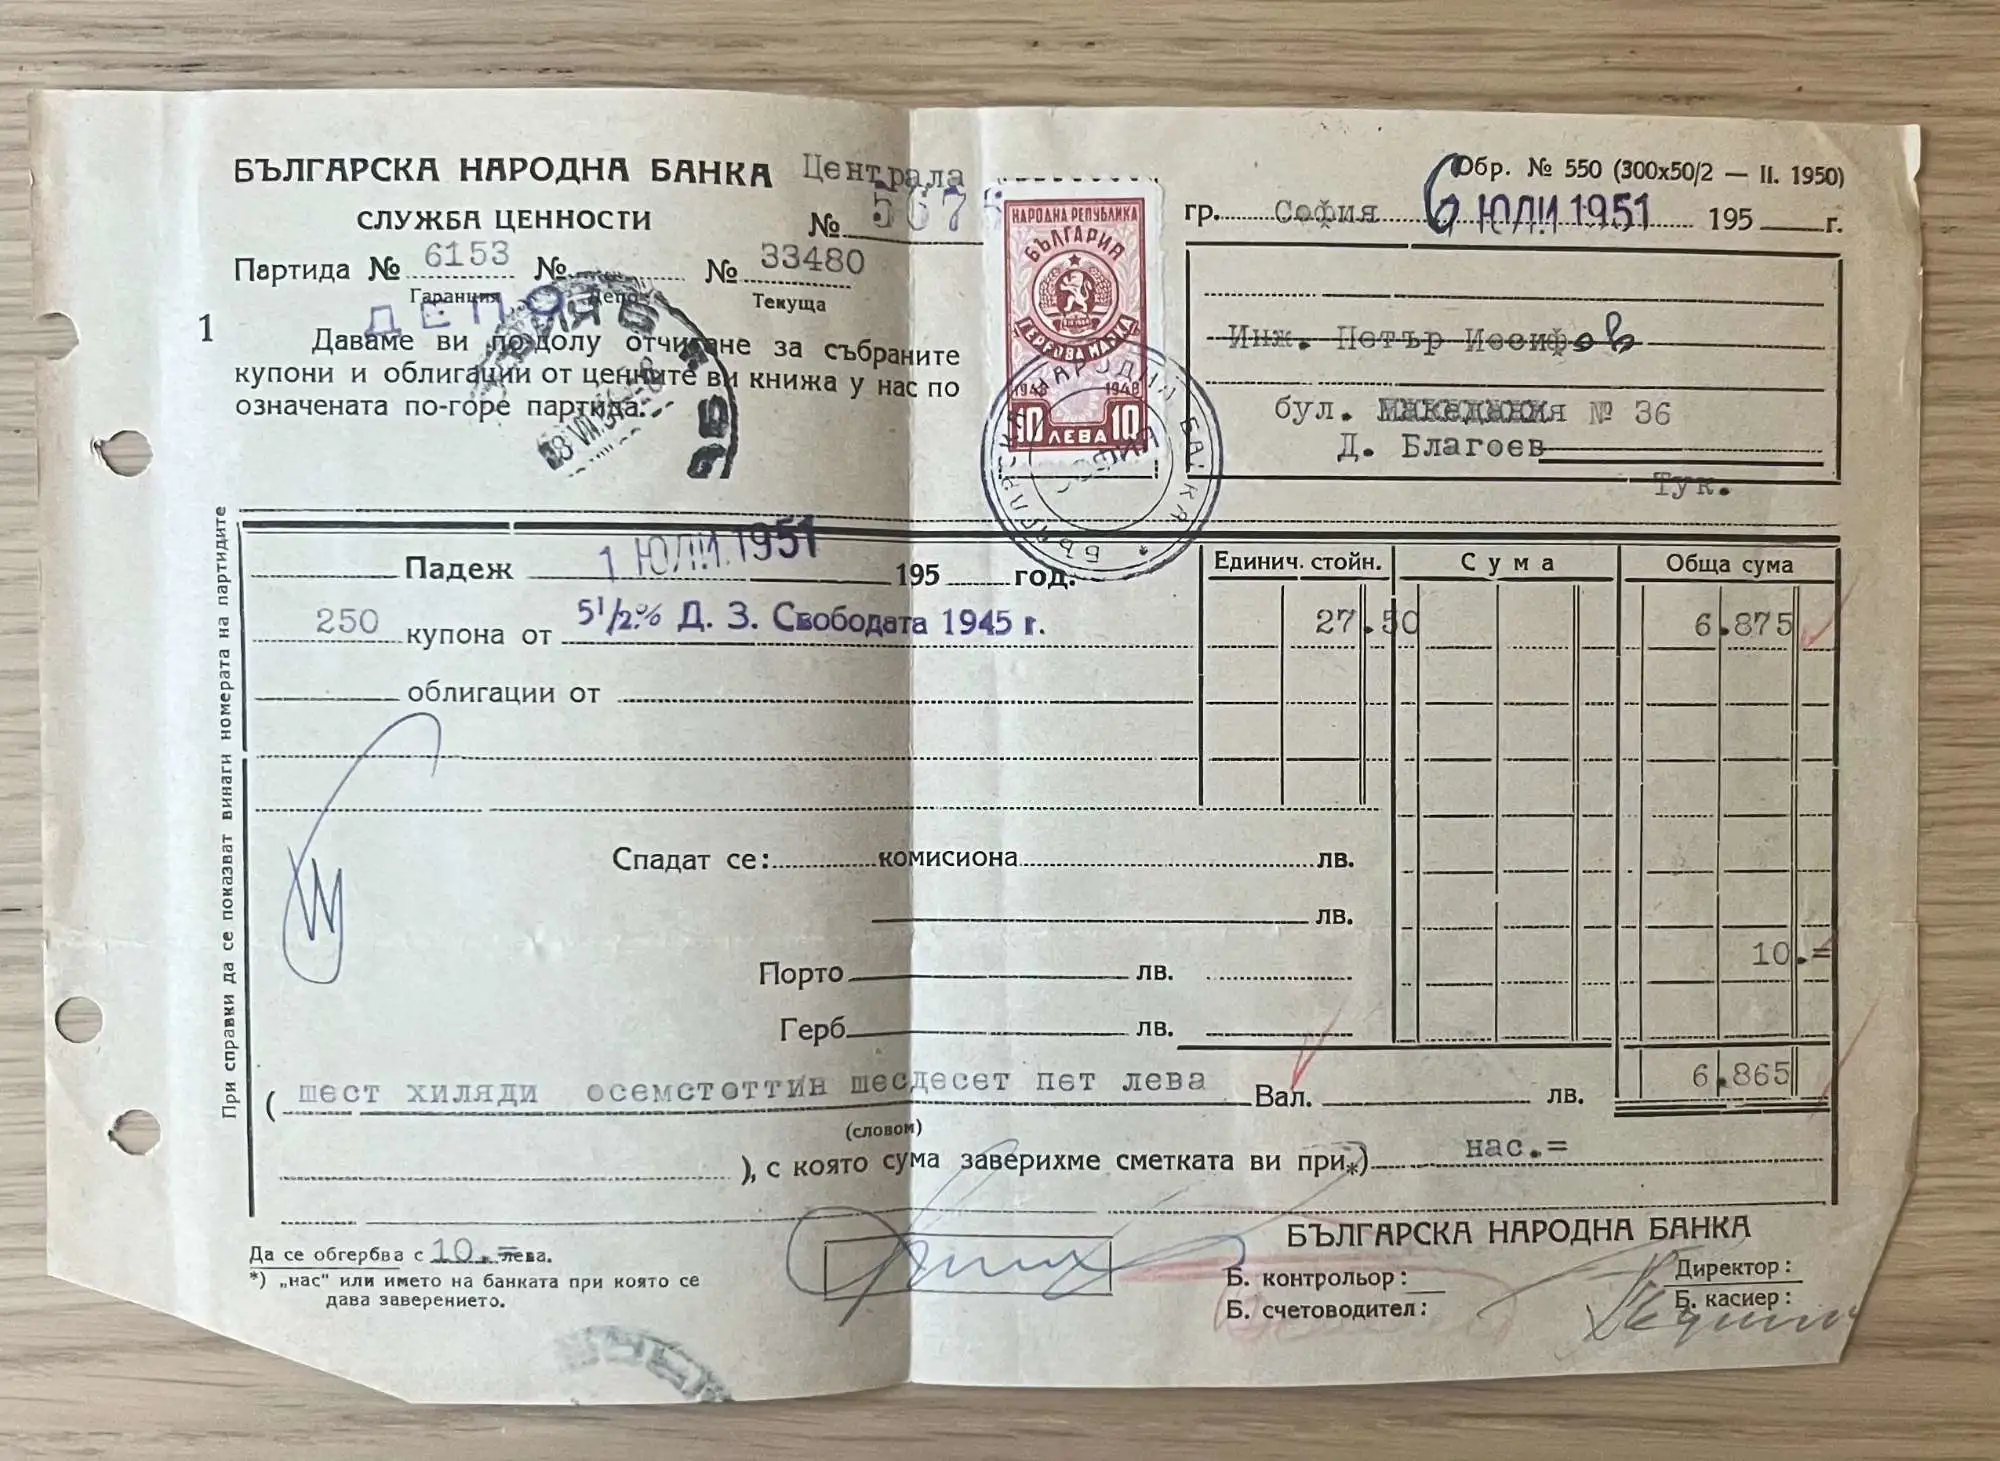 БЪЛГАРСКА НАРОДНА БАНКА Централа
СЛУЖБА ЦЕННОСТИ
№ 5675
Партида № 6153 № № 33480
Гаранция Депо Текуща
ДЕПО
1
Даваме ви по-долу отчитане за събраните
купони и облигации от ценните ви книжа у нас по
означената по-горе партида.
НАРОДНА РЕПУБЛИКА
БЪЛГАРИЯ
ГЕРБОВА МАРКА
1948 1948
10 ЛЕВА 10
БЪЛГАРСКА НАРОДНА БАНКА *
СОФИЯ
Обр. № 550 (300x50/2 — II. 1950)
гр. София 6 ЮЛИ 1951 195 г.
Инж. Петър Иосифов
бул. Македания № 36
Д. Благоев
Тук.
При справки да се показват винаги номерата на партидите
Падеж 1 ЮЛИ 1951 195 год.
Единич. стойн. Сума Обща сума
250 купона от 5 1/2 % Д. З. Свободата 1945 г. 27.50 6.875
облигации от
Спадат се: комисиона лв.
лв.
10.=
Порто лв.
Герб лв.
( шест хиляди осемстоттин шесдесет пет лева Вал. лв. 6.865
(словом)
), с която сума заверихме сметката ви при*) нас.=
БЪЛГАРСКА НАРОДНА БАНКА
Да се обгербва с 10.= лева.
*) „нас" или името на банката при която се
дава заверението.
Б. контрольор: Директор:
Б. счетоводител: Б. касиер: